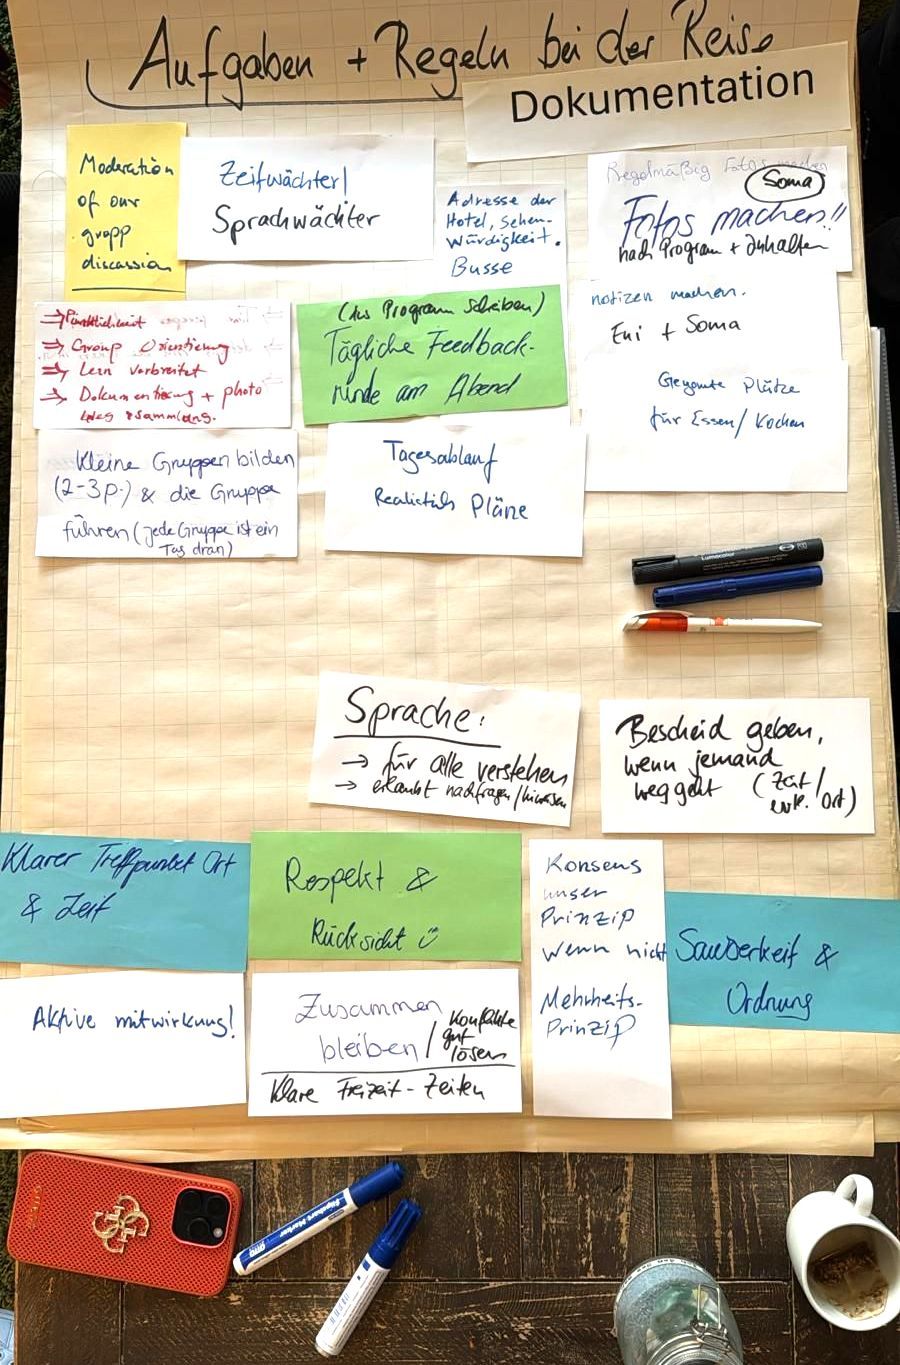 Aufgaben + Regeln bei der Reise
Dokumentation
Moderation
of our
gropp
discussion
Zeitwächter/
Sprachwächter
Adresse der
Hotel, Sehen-
würdigkeit.
Busse
Regelmäßig Fotos machen
Soma
Fotos machen!!
nach Program + Inhalten
notizen machen.
Eni + Soma
Geeignete Plätze
für Essen/Kochen
⇒ Pünktlichkeit
⇒ Group Orientierung
⇒ Lern vorbreitet
⇒ Dokumentierung + photo
sammlung.
(ins Program schreiben)
Tägliche Feedback-
runde am Abend
Kleine Gruppen bilden
(2-3 p.) & die Gruppe
führen (jede Gruppe ist ein
Tag dran)
Tagesablauf
Pläne
Lumocolor
Sprache:
→ für alle verstehen
→ erlaubt nachfragen/hinweisen
Bescheid geben,
wenn jemand
weg geht (Zeit/
evtl. Ort)
Klarer Treffpunkt Ort
& Zeit
Respekt &
Rücksicht
Konsens
unser
Prinzip
wenn nicht
Mehrheits-
Prinzip
Sauberkeit &
Ordnung
Aktive mitwirkung!
Zusammen
bleiben / Konflikte
gut
lösen
Klare Freizeit-Zeiten
Flipchart Marker